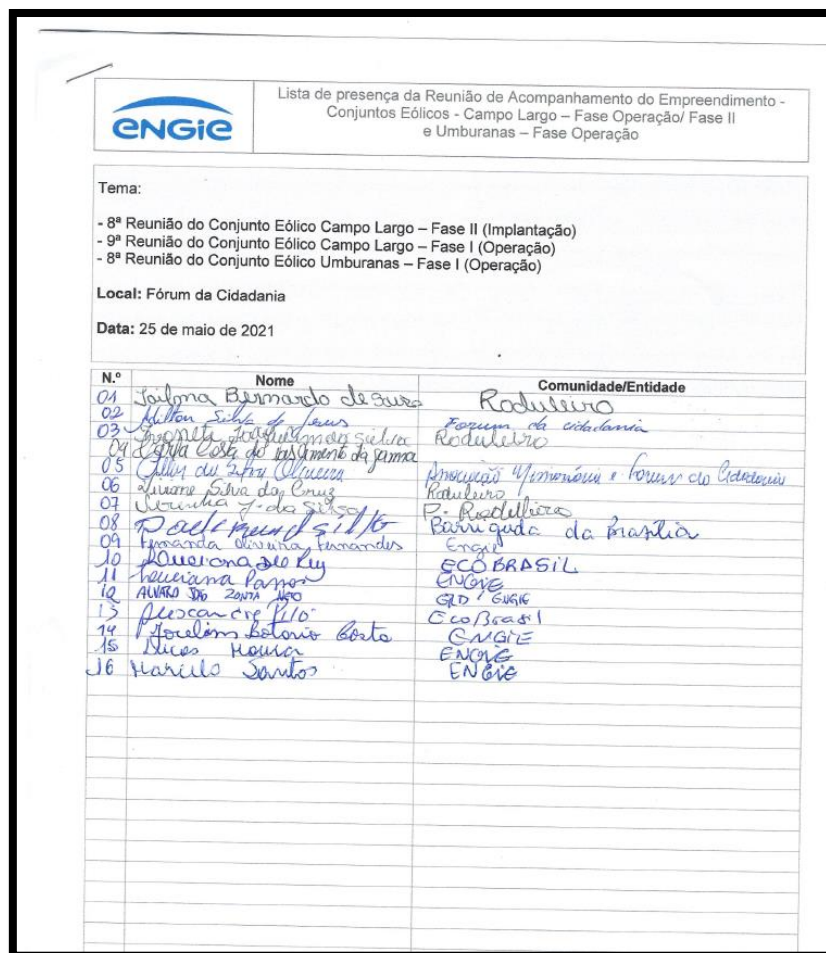 ENGIE
Lista de presença da Reunião de Acompanhamento do Empreendimento -
Conjuntos Eólicos - Campo Largo – Fase Operação/ Fase II
e Umburanas – Fase Operação
Tema:
- 8ª Reunião do Conjunto Eólico Campo Largo – Fase II (Implantação)
- 9ª Reunião do Conjunto Eólico Campo Largo – Fase I (Operação)
- 8ª Reunião do Conjunto Eólico Umburanas – Fase I (Operação)
Local: Fórum da Cidadania
Data: 25 de maio de 2021
N.º Nome Comunidade/Entidade
01 Bernardo de Roduleiro
02 Silva de Jesus Forum da cidadania
03 da Silva Roduleiro
04 Costa do nascimento da gamma
05 Oliveira Associação e Forum da Cidadania
06 Silva da Cruz Roduleiro
07 da Silva
08 Barriguda da Brasília
09 Fernanda Oliveira Fernandes Engie
10 ECOBRASIL
11 Luciana ENGIE
12 ALVARO ZONTA NETO ENGIE
13 EcoBrasil
14 Costa ENGIE
15 Lucas Moura ENGIE
16 Marcelo Santos ENGIE